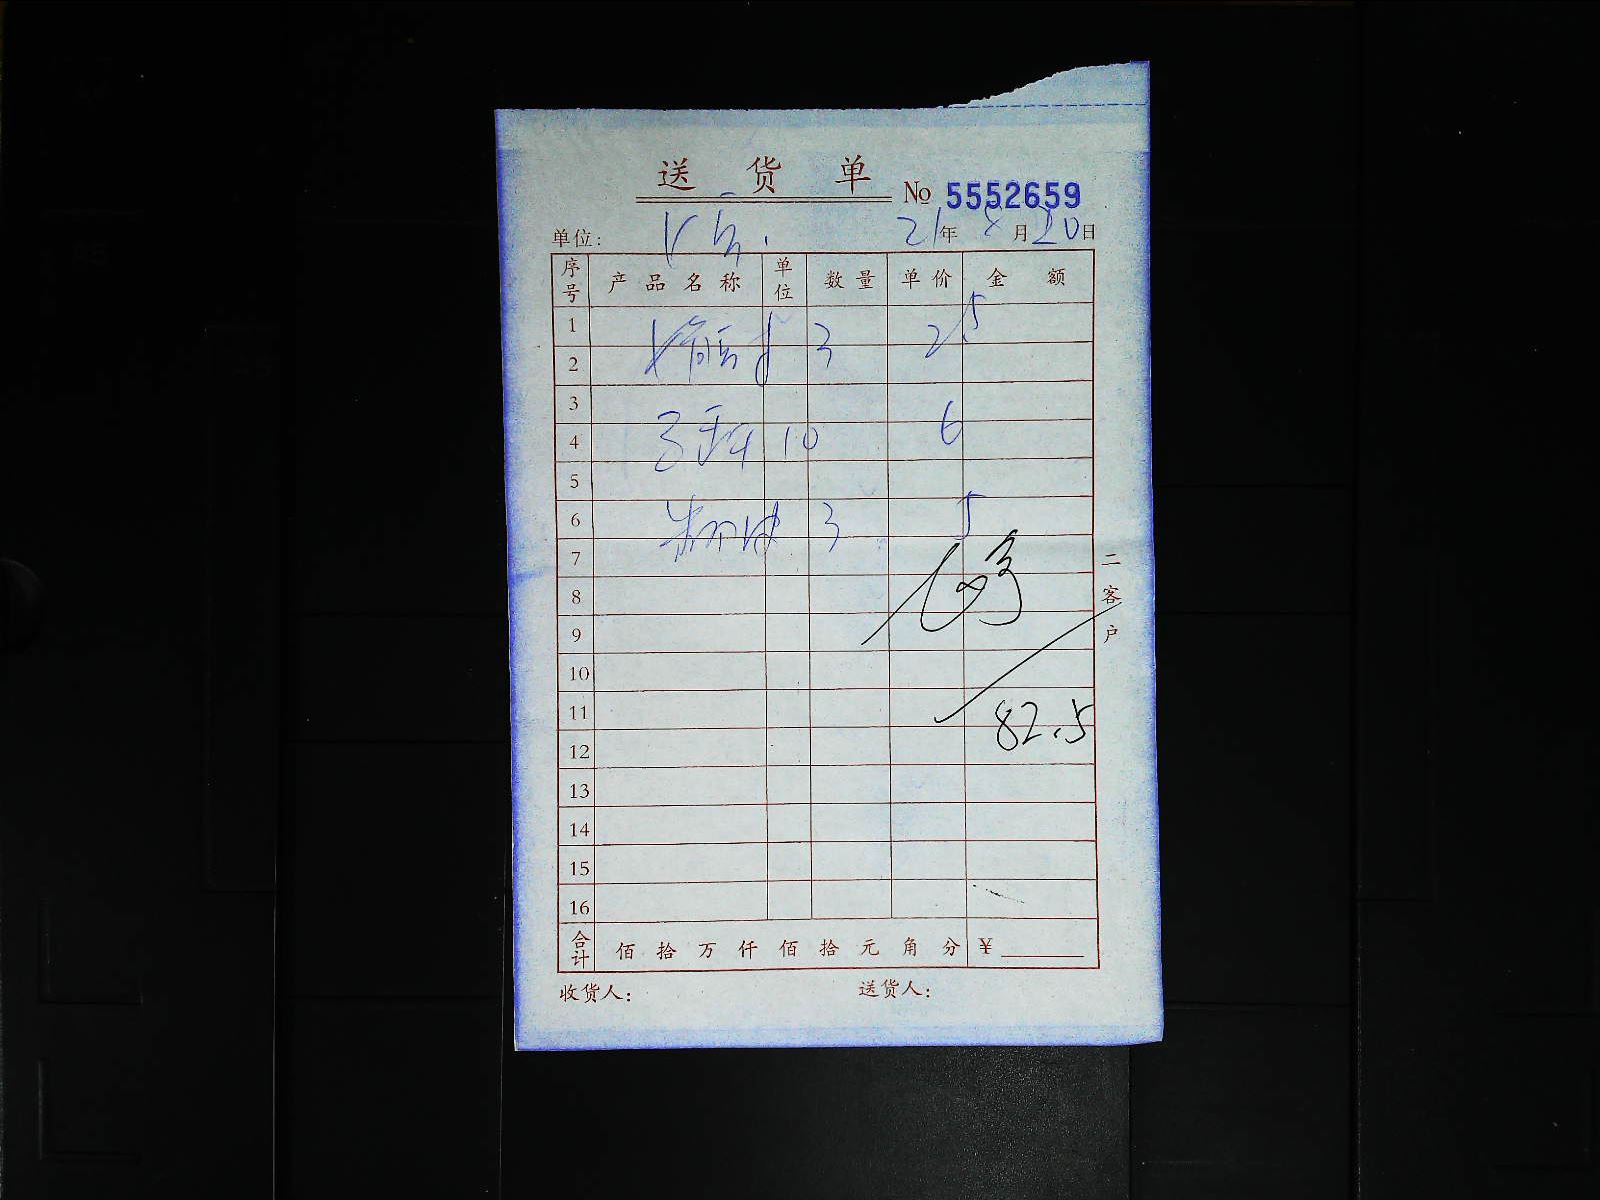 送 货 单
No 5552659
单位: 21年 8月20日
序号 产品名称 单位 数量 单价 金额
1
3 2.5
2
3
10 6
4
5
3 5
6
7
8
9
10
11
82.5
12
13
14
15
16
合计 佰 拾 万 仟 佰 拾 元 角 分 ¥
收货人: 送货人:
二客户